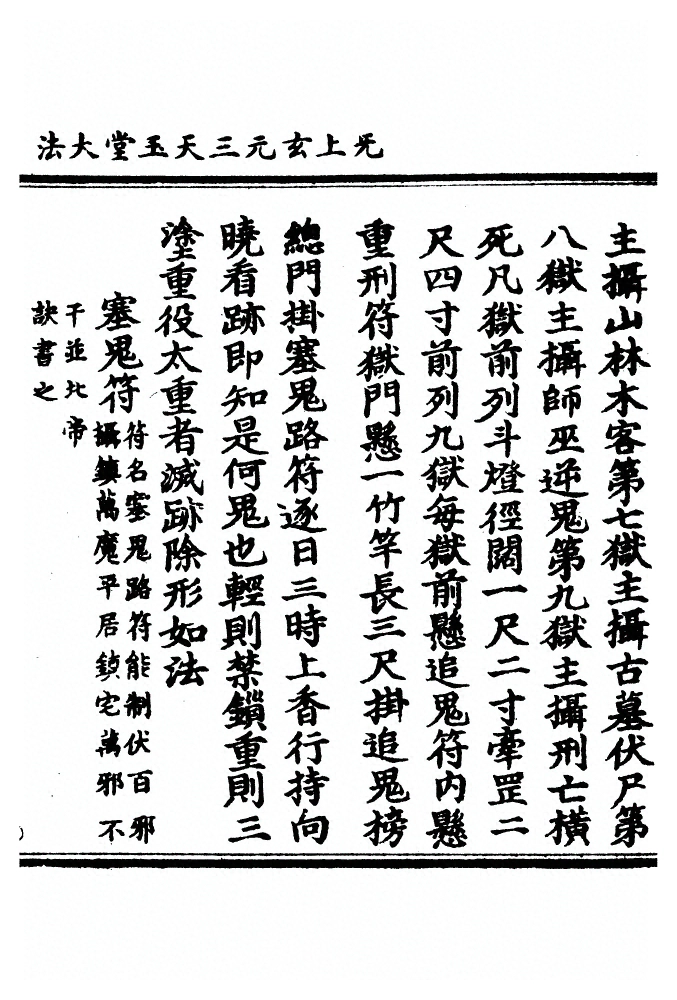 无上玄元三天玉堂大法
主攝山林木客第七獄主攝古墓伏尸第
八獄主攝師巫逆鬼第九獄主攝刑亡橫
死凡獄前列斗燈徑闊一尺二寸牽罡二
尺四寸前列九獄每獄前懸追鬼符內懸
重刑符獄門懸一竹竿長三尺掛追鬼榜
總門掛塞鬼路符逐日三時上香行持向
曉看跡即知是何鬼也輕則禁鎖重則三
塗重役太重者滅跡除形如法
塞鬼符
符名塞鬼路符能制伏百邪
攝鎮萬魔平居鎮宅萬邪不
干並北帝
訣書之